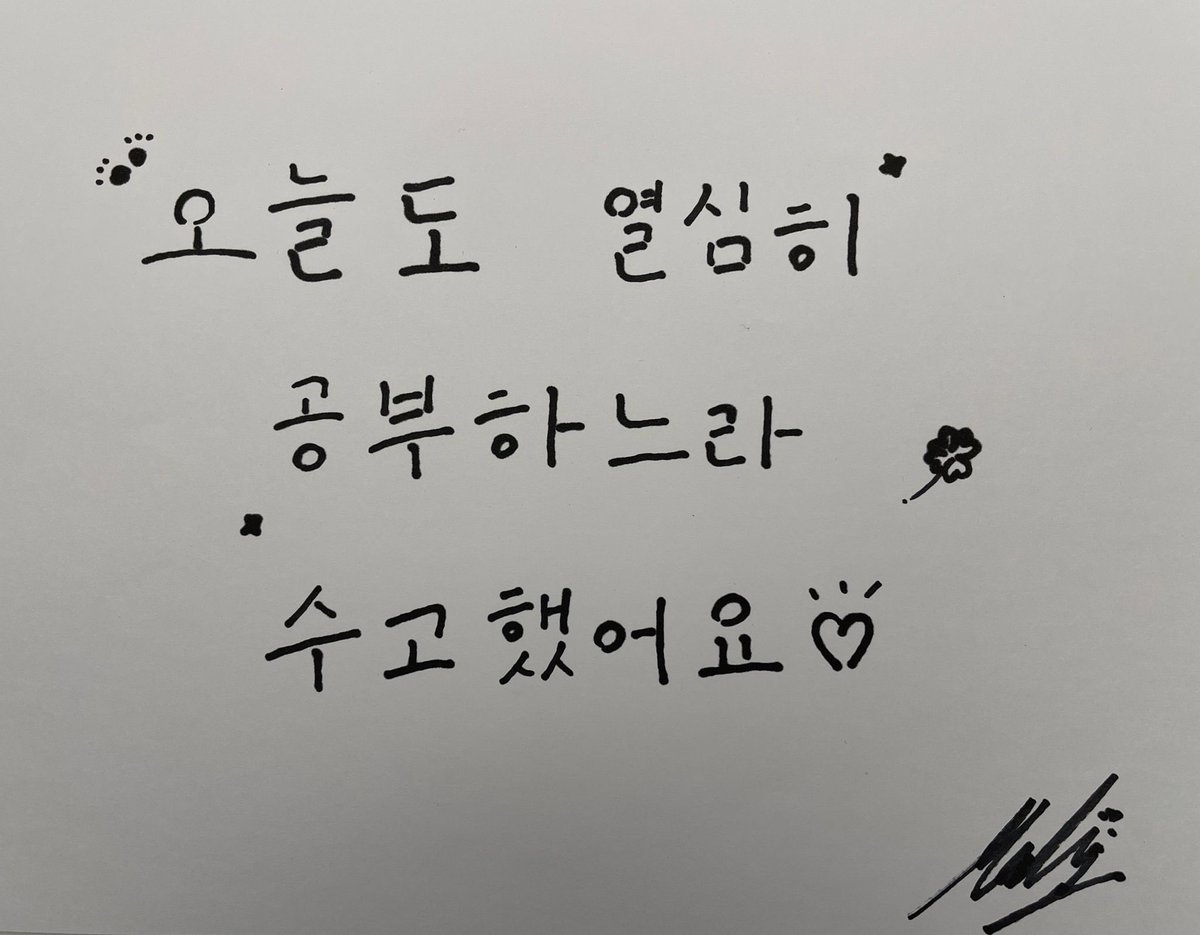 오늘도 열심히
공부하느라
수고했어요♡